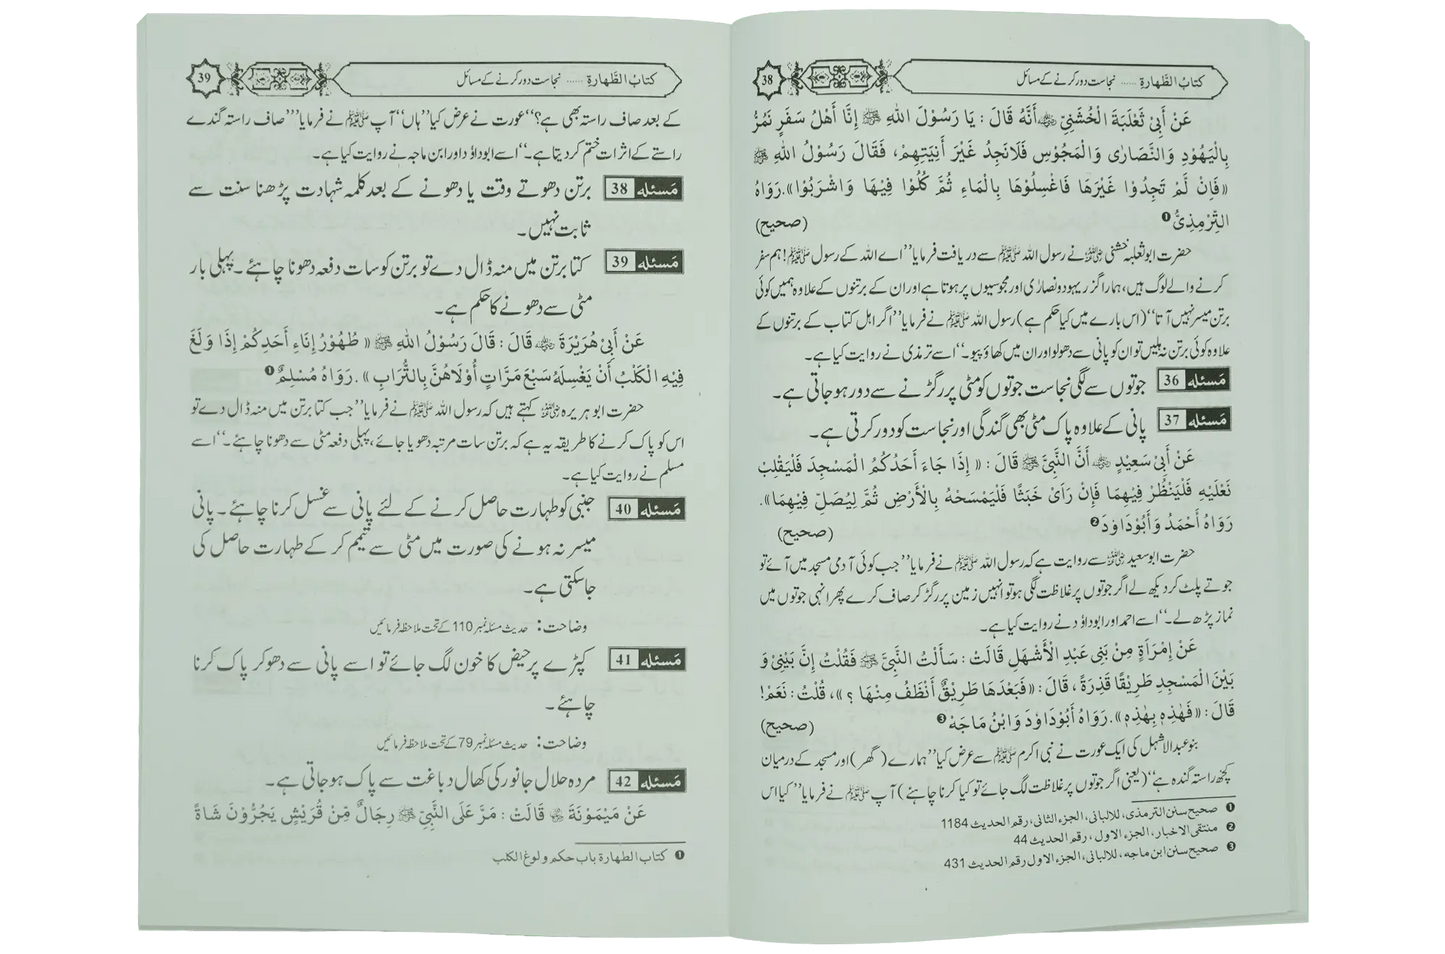 38
کتابُ الطّہارۃِ ...... نجاست دور کرنے کے مسائل
عَنْ أَبِیْ ثَعْلَبَةَ الْخُشَنِیِّ ﷜ أَنَّهُ قَالَ : یَا رَسُوْلَ اللهِ ﷺ إِنَّا أَهْلُ سَفَرٍ نَمُرُّ
بِالْیَهُوْدِ وَالنَّصَارٰی وَالْمَجُوْسِ فَلَا نَجِدُ غَیْرَ آنِیَتِهِمْ، فَقَالَ رَسُوْلُ اللهِ ﷺ
((فَإِنْ لَمْ تَجِدُوْا غَیْرَهَا فَاغْسِلُوْهَا بِالْمَاءِ ثُمَّ کُلُوْا فِیْهَا وَاشْرَبُوْا)). رَوَاهُ
التِّرْمِذِیُّ❶ (صحیح)
حضرت ابوثعلبہ خشنی ﷜ نے رسول اللہ ﷺ سے دریافت فرمایا ’’اے اللہ کے رسول ﷺ! ہم سفر
کرنے والے لوگ ہیں، ہمارا گزر یہود و نصاریٰ اور مجوسیوں پر ہوتا ہے اور ان کے برتنوں کے علاوہ ہمیں کوئی
برتن میسر نہیں آتا‘‘ (اس بارے میں کیا حکم ہے) رسول اللہ ﷺ نے فرمایا ’’اگر اہل کتاب کے برتنوں کے
علاوہ کوئی برتن نہ ملیں تو ان کو پانی سے دھولو اور ان میں کھاؤ پیو۔‘‘ اسے ترمذی نے روایت کیا ہے۔
مَسئلہ 36 جوتوں سے لگی نجاست جوتوں کو مٹی پر رگڑنے سے دور ہوجاتی ہے۔
مَسئلہ 37 پانی کے علاوہ پاک مٹی بھی گندگی اور نجاست کو دور کرتی ہے۔
عَنْ أَبِیْ سَعِیْدٍ ﷜ أَنَّ النَّبِیَّ ﷺ قَالَ : (( إِذَا جَاءَ أَحَدُکُمُ الْمَسْجِدَ فَلْیَقْلِبْ
نَعْلَیْهِ فَلْیَنْظُرْ فِیْهِمَا فَإِنْ رَأیٰ خَبَثًا فَلْیَمْسَحْهُ بِالْأَرْضِ ثُمَّ لِیُصَلِّ فِیْهِمَا)).
رَوَاهُ أَحْمَدُ وَأَبُوْدَاوُدَ❷ (صحیح)
حضرت ابوسعید ﷜ سے روایت ہے کہ رسول اللہ ﷺ نے فرمایا ’’جب کوئی آدمی مسجد میں آئے تو
جوتے پلٹ کر دیکھ لے اگر جوتوں پر غلاظت لگی ہو تو انہیں زمین پر رگڑ کر صاف کرے پھر انہی جوتوں میں
نماز پڑھ لے۔‘‘ اسے احمد اور ابوداؤد نے روایت کیا ہے۔
عَنْ إِمْرَأَةٍ مِنْ بَنِی عَبْدِ الْأَشْهَلِ قَالَتْ : سَأَلْتُ النَّبِیَّ ﷺ فَقُلْتُ إِنَّ بَیْنِیْ وَ
بَیْنَ الْمَسْجِدِ طَرِیْقًا قَذِرَةً ، قَالَ : ((فَبَعْدَهَا طَرِیْقٌ أَنْظَفُ مِنْهَا ؟))، قُلْتُ : نَعَمْ!
قَالَ : ((فَهٰذِهٖ بِهٰذِهٖ)). رَوَاهُ أَبُوْدَاوُدَ وَابْنُ مَاجَهْ❸ (صحیح)
بنو عبدالاشہل کی ایک عورت نے نبی اکرم ﷺ سے عرض کیا ’’ہمارے (گھر) اور مسجد کے درمیان
کچھ راستہ گندہ ہے‘‘ (یعنی اگر جوتوں پر غلاظت لگ جائے تو کیا کرنا چاہئے) آپ ﷺ نے فرمایا ’’کیا اس
❶ صحیح سنن الترمذی، للالبانی، الجزء الثانی، رقم الحدیث 1184
❷ منتقی الاخبار، الجزء الاول ، رقم الحدیث 44
❸ صحیح سنن ابن ماجہ، للالبانی، الجزء الاول رقم الحدیث 431
39
کتابُ الطّہارۃِ ...... نجاست دور کرنے کے مسائل
کے بعد صاف راستہ بھی ہے؟‘‘ عورت نے عرض کیا ’’ہاں‘‘ آپ ﷺ نے فرمایا ’’’صاف راستہ گندے
راستے کے اثرات ختم کردیتا ہے۔‘‘ اسے ابوداؤد اور ابن ماجہ نے روایت کیا ہے۔
مَسئلہ 38 برتن دھوتے وقت یا دھونے کے بعد کلمہ شہادت پڑھنا سنت سے
ثابت نہیں۔
مَسئلہ 39 کتا برتن میں منہ ڈال دے تو برتن کو سات دفعہ دھونا چاہئے۔ پہلی بار
مٹی سے دھونے کا حکم ہے۔
عَنْ أَبِیْ هُرَیْرَةَ ﷜ قَالَ : قَالَ رَسُوْلُ اللهِ ﷺ (( طُهُوْرُ إِنَاءِ أَحَدِکُمْ إِذَا وَلَغَ
فِیْهِ الْکَلْبُ أَنْ یَغْسِلَهُ سَبْعَ مَرَّاتٍ أُوْلَاهُنَّ بِالتُّرَابِ )). رَوَاهُ مُسْلِمٌ❶
حضرت ابوہریرہ ﷜ کہتے ہیں کہ رسول اللہ ﷺ نے فرمایا ’’جب کتا برتن میں منہ ڈال دے تو
اس کو پاک کرنے کا طریقہ یہ ہے کہ برتن سات مرتبہ دھویا جائے، پہلی دفعہ مٹی سے دھونا چاہئے۔‘‘ اسے
مسلم نے روایت کیا ہے۔
مَسئلہ 40 جنبی کو طہارت حاصل کرنے کے لئے پانی سے غسل کرنا چاہئے۔ پانی
میسر نہ ہونے کی صورت میں مٹی سے تیمم کرکے طہارت حاصل کی
جاسکتی ہے۔
وضاحت : حدیث مسئلہ نمبر 110 کے تحت ملاحظہ فرمائیں
مَسئلہ 41 کپڑے پر حیض کا خون لگ جائے تو اسے پانی سے دھو کر پاک کرنا
چاہئے۔
وضاحت : حدیث مسئلہ نمبر 79 کے تحت ملاحظہ فرمائیں
مَسئلہ 42 مردہ حلال جانور کی کھال دباغت سے پاک ہوجاتی ہے۔
عَنْ مَیْمُوْنَةَ ﷞ قَالَتْ : مَرَّ عَلَی النَّبِیِّ ﷺ رِجَالٌ مِّنْ قُرَیْشٍ یَجُرُّوْنَ شَاةً
❶ کتاب الطھارۃ باب حکم ولوغ الکلب